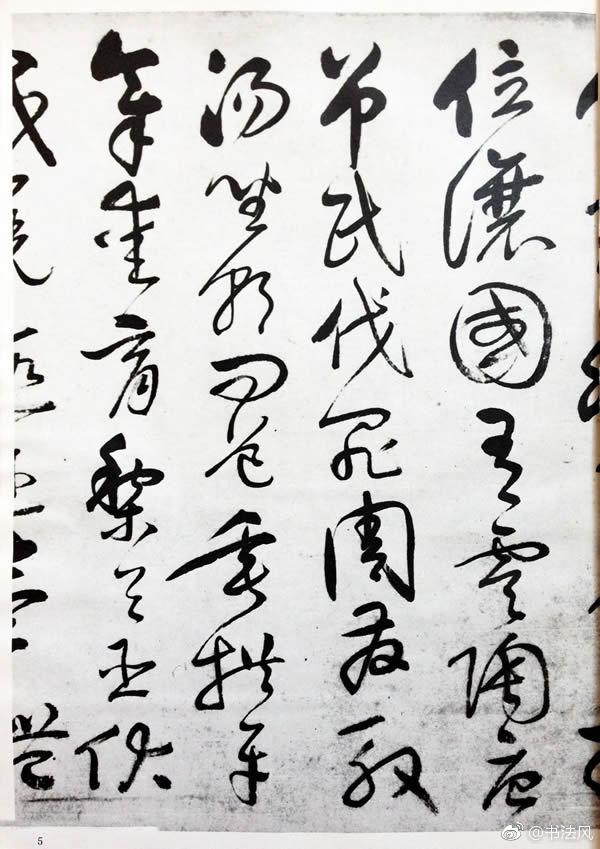 位讓國有虞陶唐
吊民伐罪周發殷
湯坐朝問道垂拱平
章愛育黎首臣伏
戎羌遐邇壹體
5
@书法风